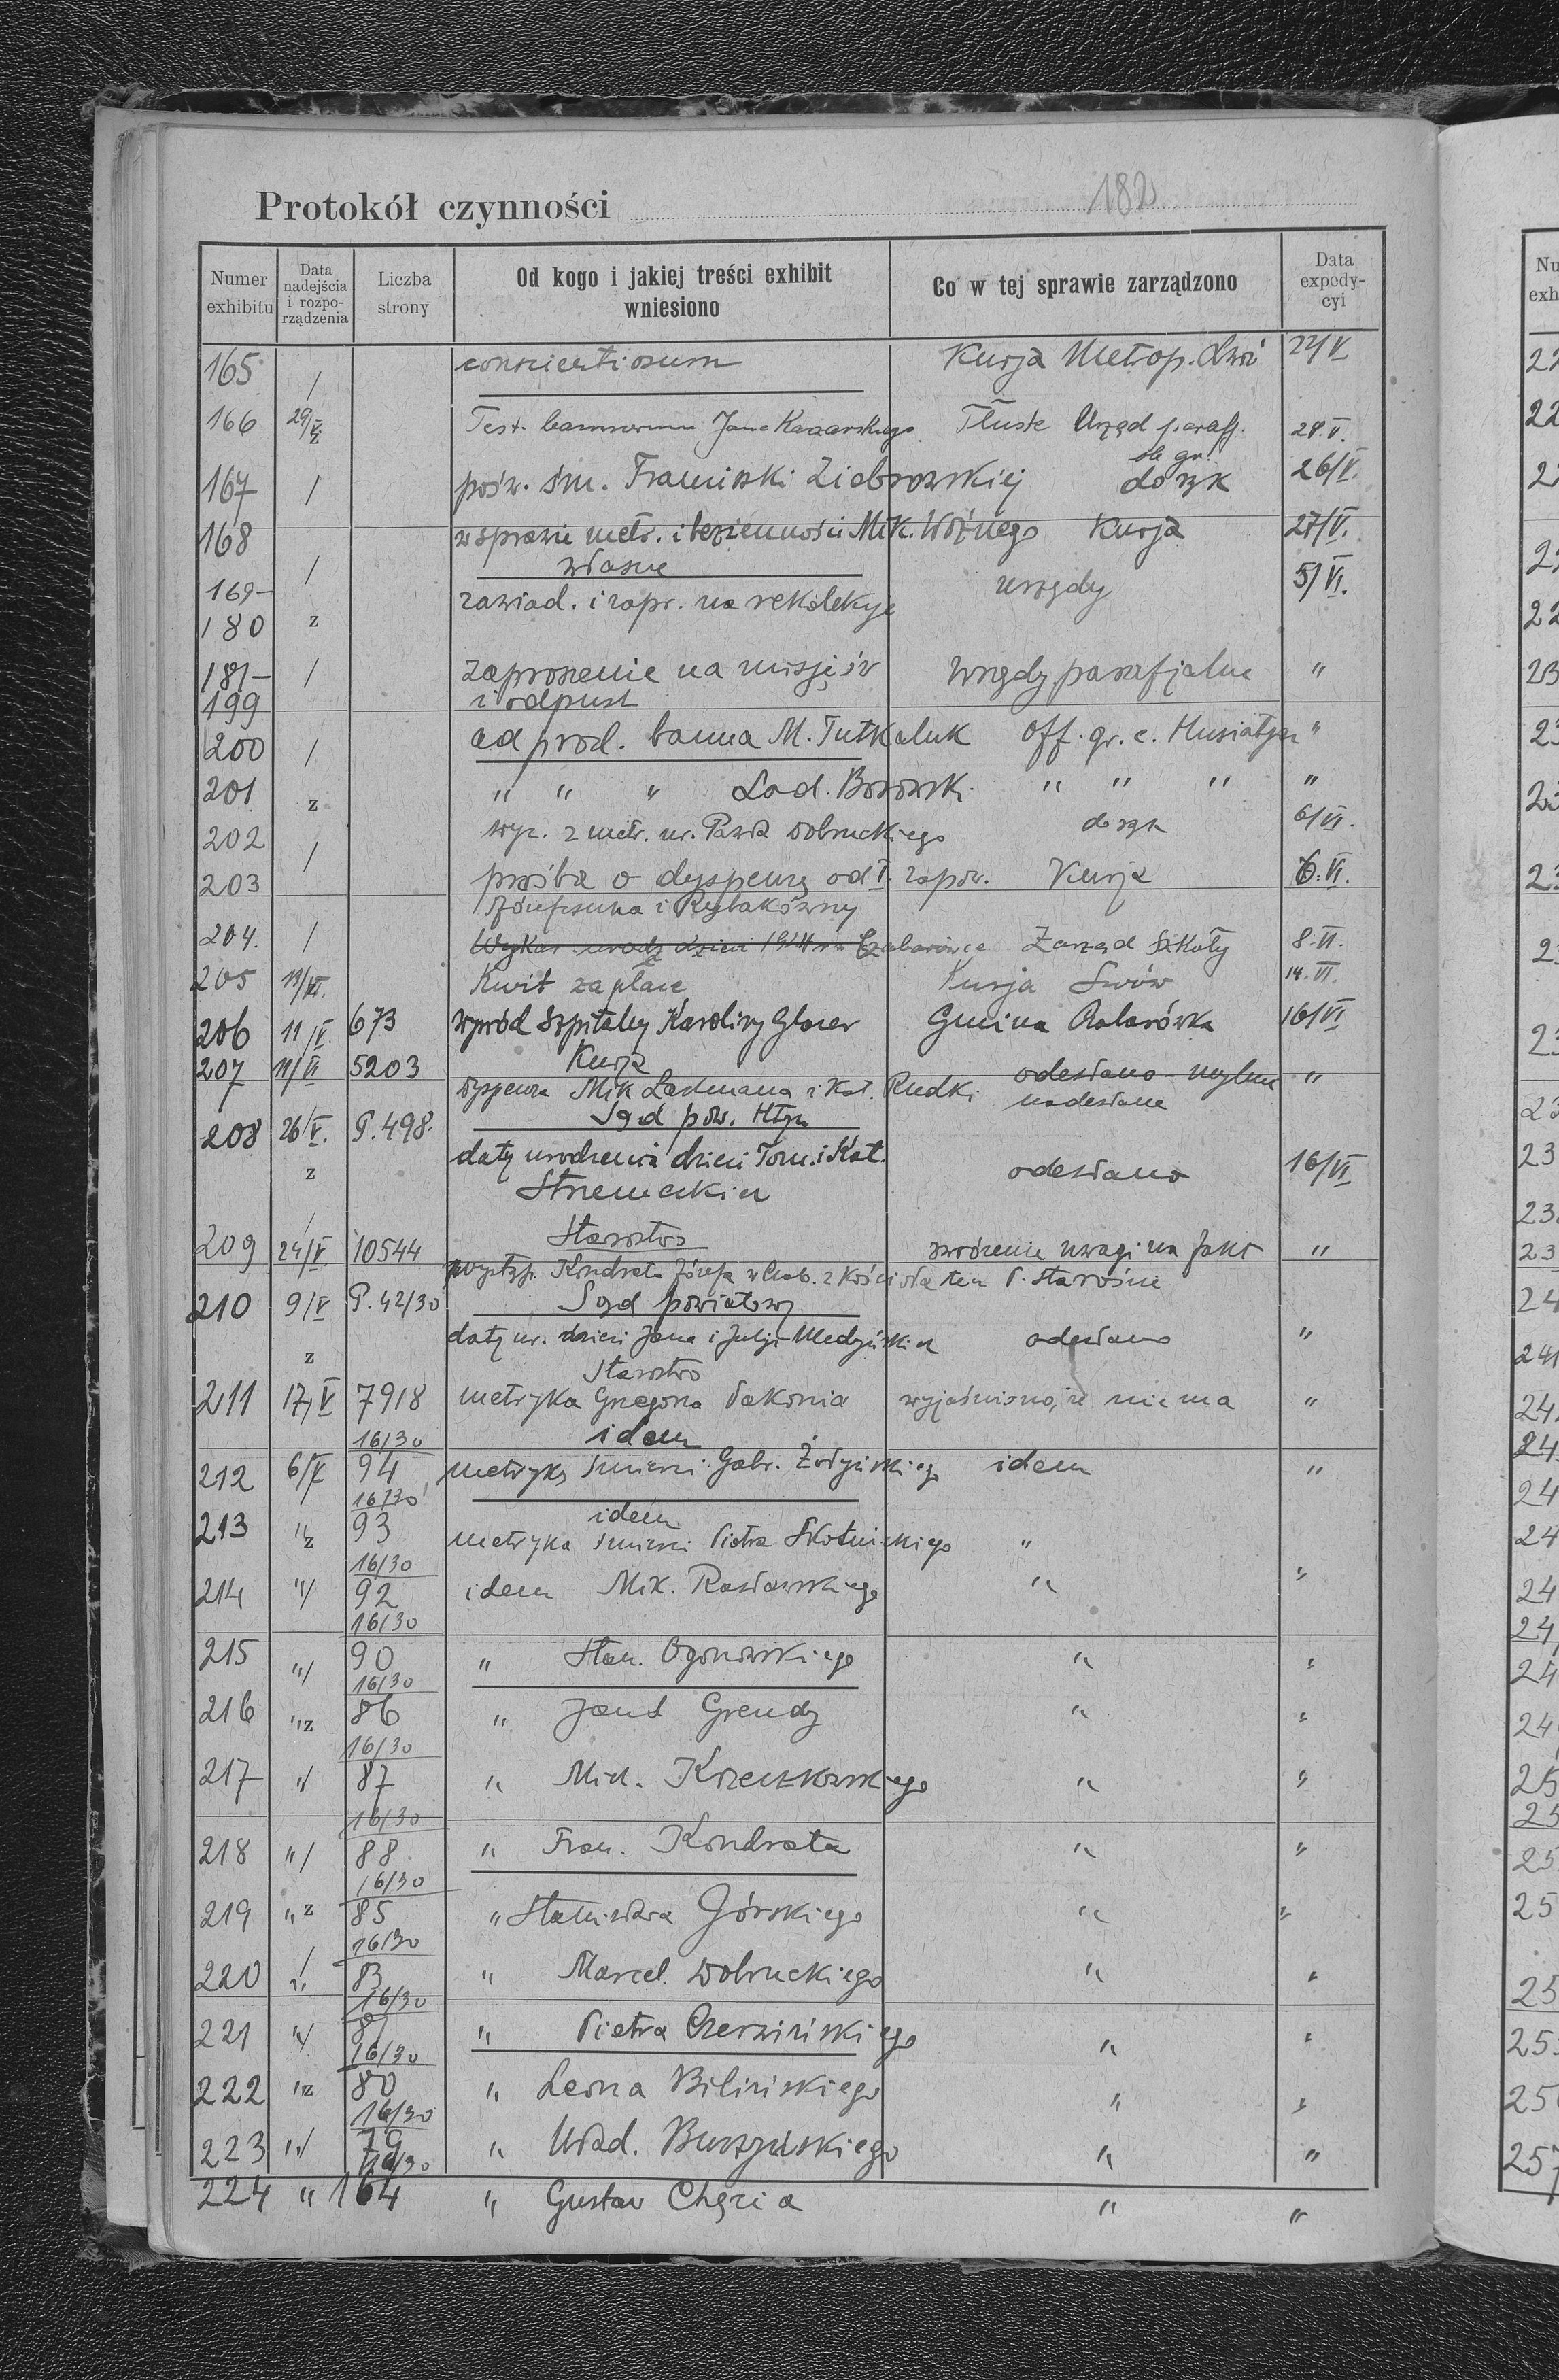 Protokół czynności 182
Numer exhibitu | Data nadejścia i rozporządzenia | Liczba strony | Od kogo i jakiej treści exhibit wniesiono | Co w tej sprawie zarządzono | Data expedycyi
165 / Kurja Metrop. 24/V
166 29/V z Test. bannorum Jana Tłuste Urząd paraf. 28.V.
ob. gr.
167 / pośw. śm. Franciszki Ziobrowskiej do rąk 26/V.
168 / w sprawie metr. i Mik. Woźnego Kurja 27/V.
własne
169- 180 z zawiad. i zapr. na rekolekcje urzędy 5/VI.
181- 199 / zaproszenie na misję św Urzędy parafjalne "
i odpust
200 / ad prod. banna M. Tutkaluk Off. gr. c. Husiatyn "
201 z " " " Lad. Borowsk. " " " "
202 wyc. z metr. ur. Pawła Dobruckiego do rąk 6/VI.
203 / prośba o dyspenzę od I. zapow. Kurja 6.VI.
204. / Wykaz urodz. dzieci 1924 Zarząd Szkoły 8.VI.
205 13/VI. Kwit zapłac Kurja Lwów 14.VI.
206 11/V. 673 wywód Szpitalny Karoliny Glaser Gmina 16/VI
Kurja
207 11/VI 5203 dyspenza Mik. i Kat. Rudki odesłano "
nadesłane
Sąd pow. Htyn
208 26/V. P.498. daty urodzenia dzieci Tom. i Kat. odesłano 16/VI
z
Starostwo
209 24/V. 10544 wystąp. Kondrata Józefa w Czab. z kościoła zwrócenie uwagi na fakt "
ten P. Starości
Sąd powiatowy
210 9/V P.42/30 daty ur. dzieci Jana i Julji Medyńskich odesłano "
z
Starostwo
211 17/V 7918 metryka Grzegorza Sakonia wyjaśniono, że nie ma "
16/30 idem
212 6/V 94 metryka śmierci Gabr. Żołyńskiego idem "
16/30 idem
213 " z 93 metryka śmierci Piotra Skotnickiego "
16/30
214 " / 92 idem Mik. Rasławskiego " "
16/30
215 " / 90 " Stan. Ogonowskiego " "
16/30
216 " z 86 " Grendy " "
16/30
217 " / 87 " Mich. Krzeczkowskiego " "
16/30
218 " / 88 " Fran. Kondrata " "
16/30
219 " z 85 " Stanisława Górskiego " "
16/30
220 " / 83 " Marcel. Dobruckiego " "
16/30
221 " / 81 " Piotra Czerwińskiego " "
16/30
222 " z 80 " Leona Bilińskiego " "
16/30
223 " / 79 " Wład. Burzyńskiego " "
16/30
224 " 164 " Gustaw " "